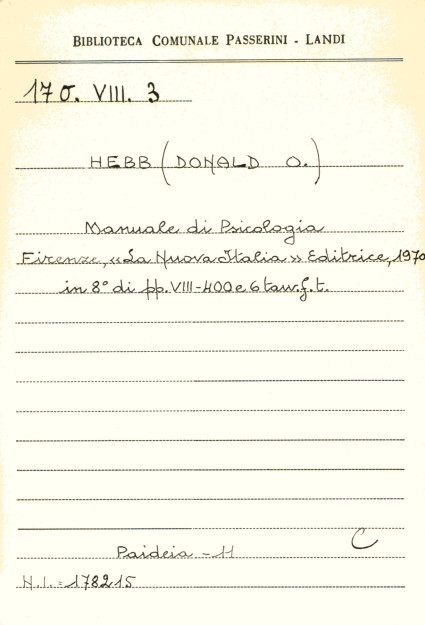 BIBLIOTECA COMUNALE PASSERINI - LANDI
17 O. VIII. 3
HEBB (DONALD O.)
Manuale di Psicologia
Firenze, «La Nuova Italia» Editrice, 1970
in 8° di pp. VIII-400 e 6 tav. f. t.
C
Paideia - 11
N.I. = 178215